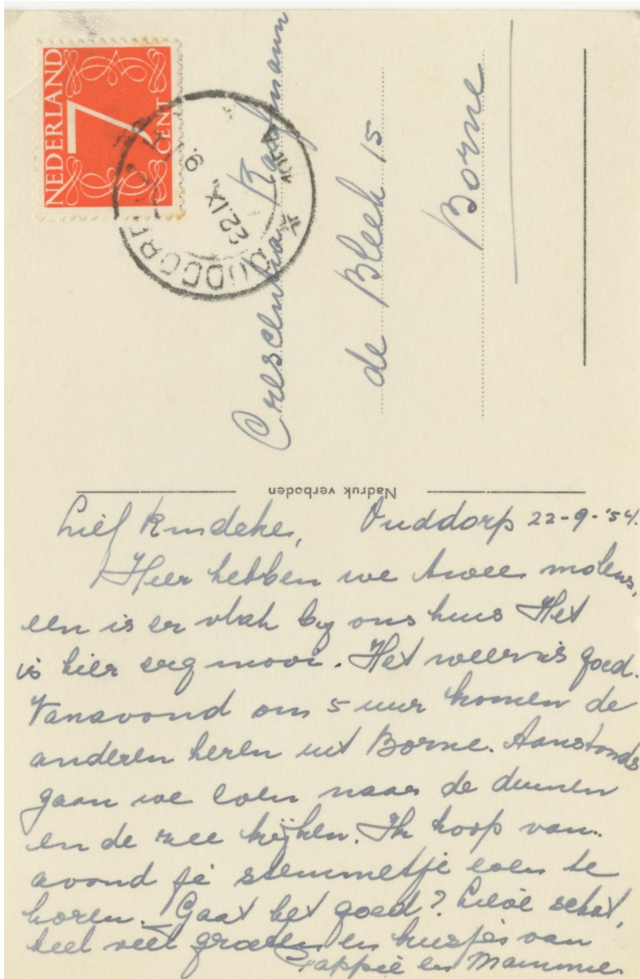 NEDERLAND
7
CENT
OUDDORP
22.IX
Crescentia Kaufmann
de Bleek 15
Borne
Nadruk verboden
Lief Kindeke, Ouddorp 22-9-'54.
Hier hebben we twee molens,
een is er vlak bij ons huis Het
is hier erg mooi. Het weer is goed.
Vanavond om 5 uur komen de
anderen heren uit Borne. Aanstonds
gaan we even naar de duinen
en de zee kijken. Ik hoop van-
avond je stemmetje even te
horen. Gaat het goed? Lieve schat,
heel veel groeten en kusjes van
Pappie en Mammie